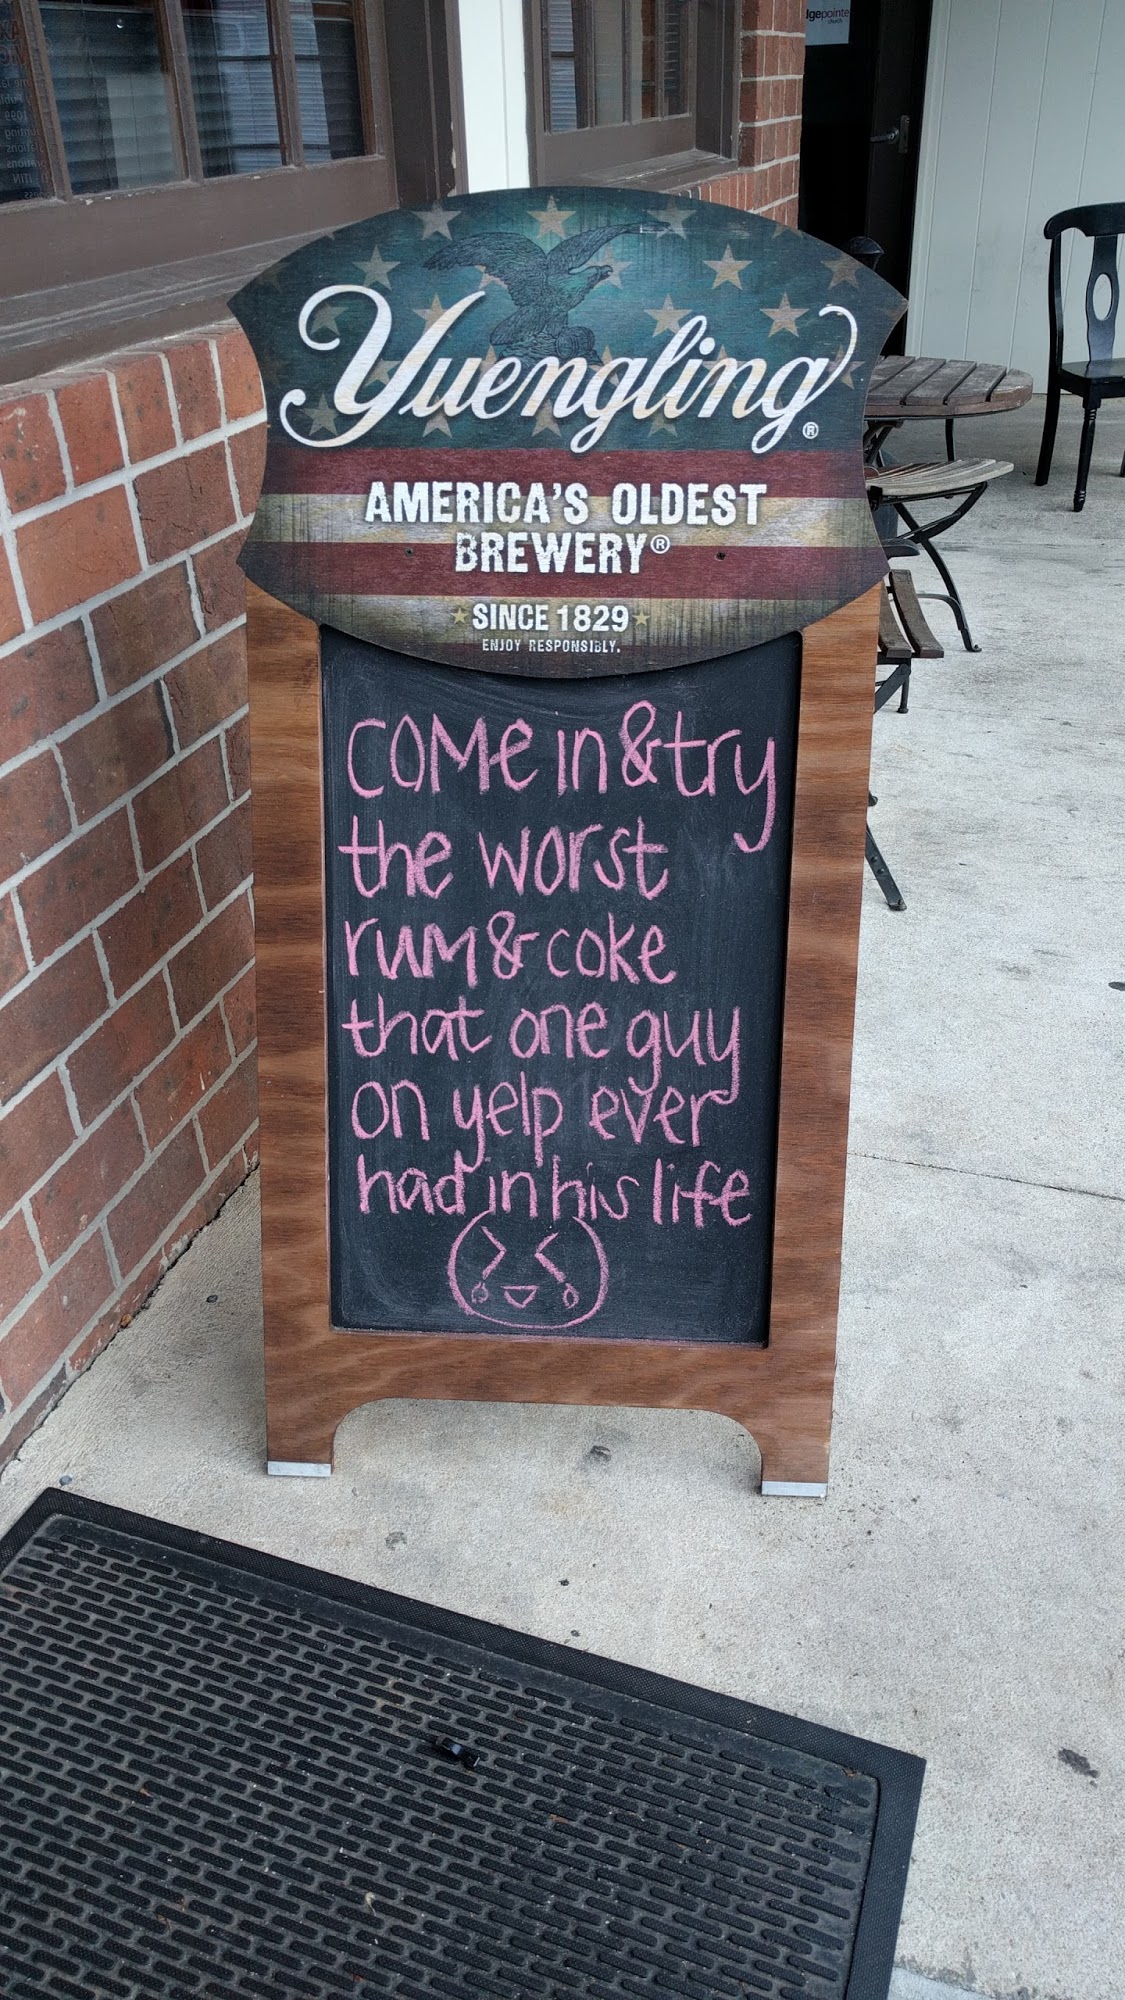 dgepointe
church
Yuengling®
AMERICA'S OLDEST
BREWERY®
SINCE 1829
ENJOY RESPONSIBLY.
COMe in & try
the worst
rum & coke
that one guy
on yelp ever
had in his life